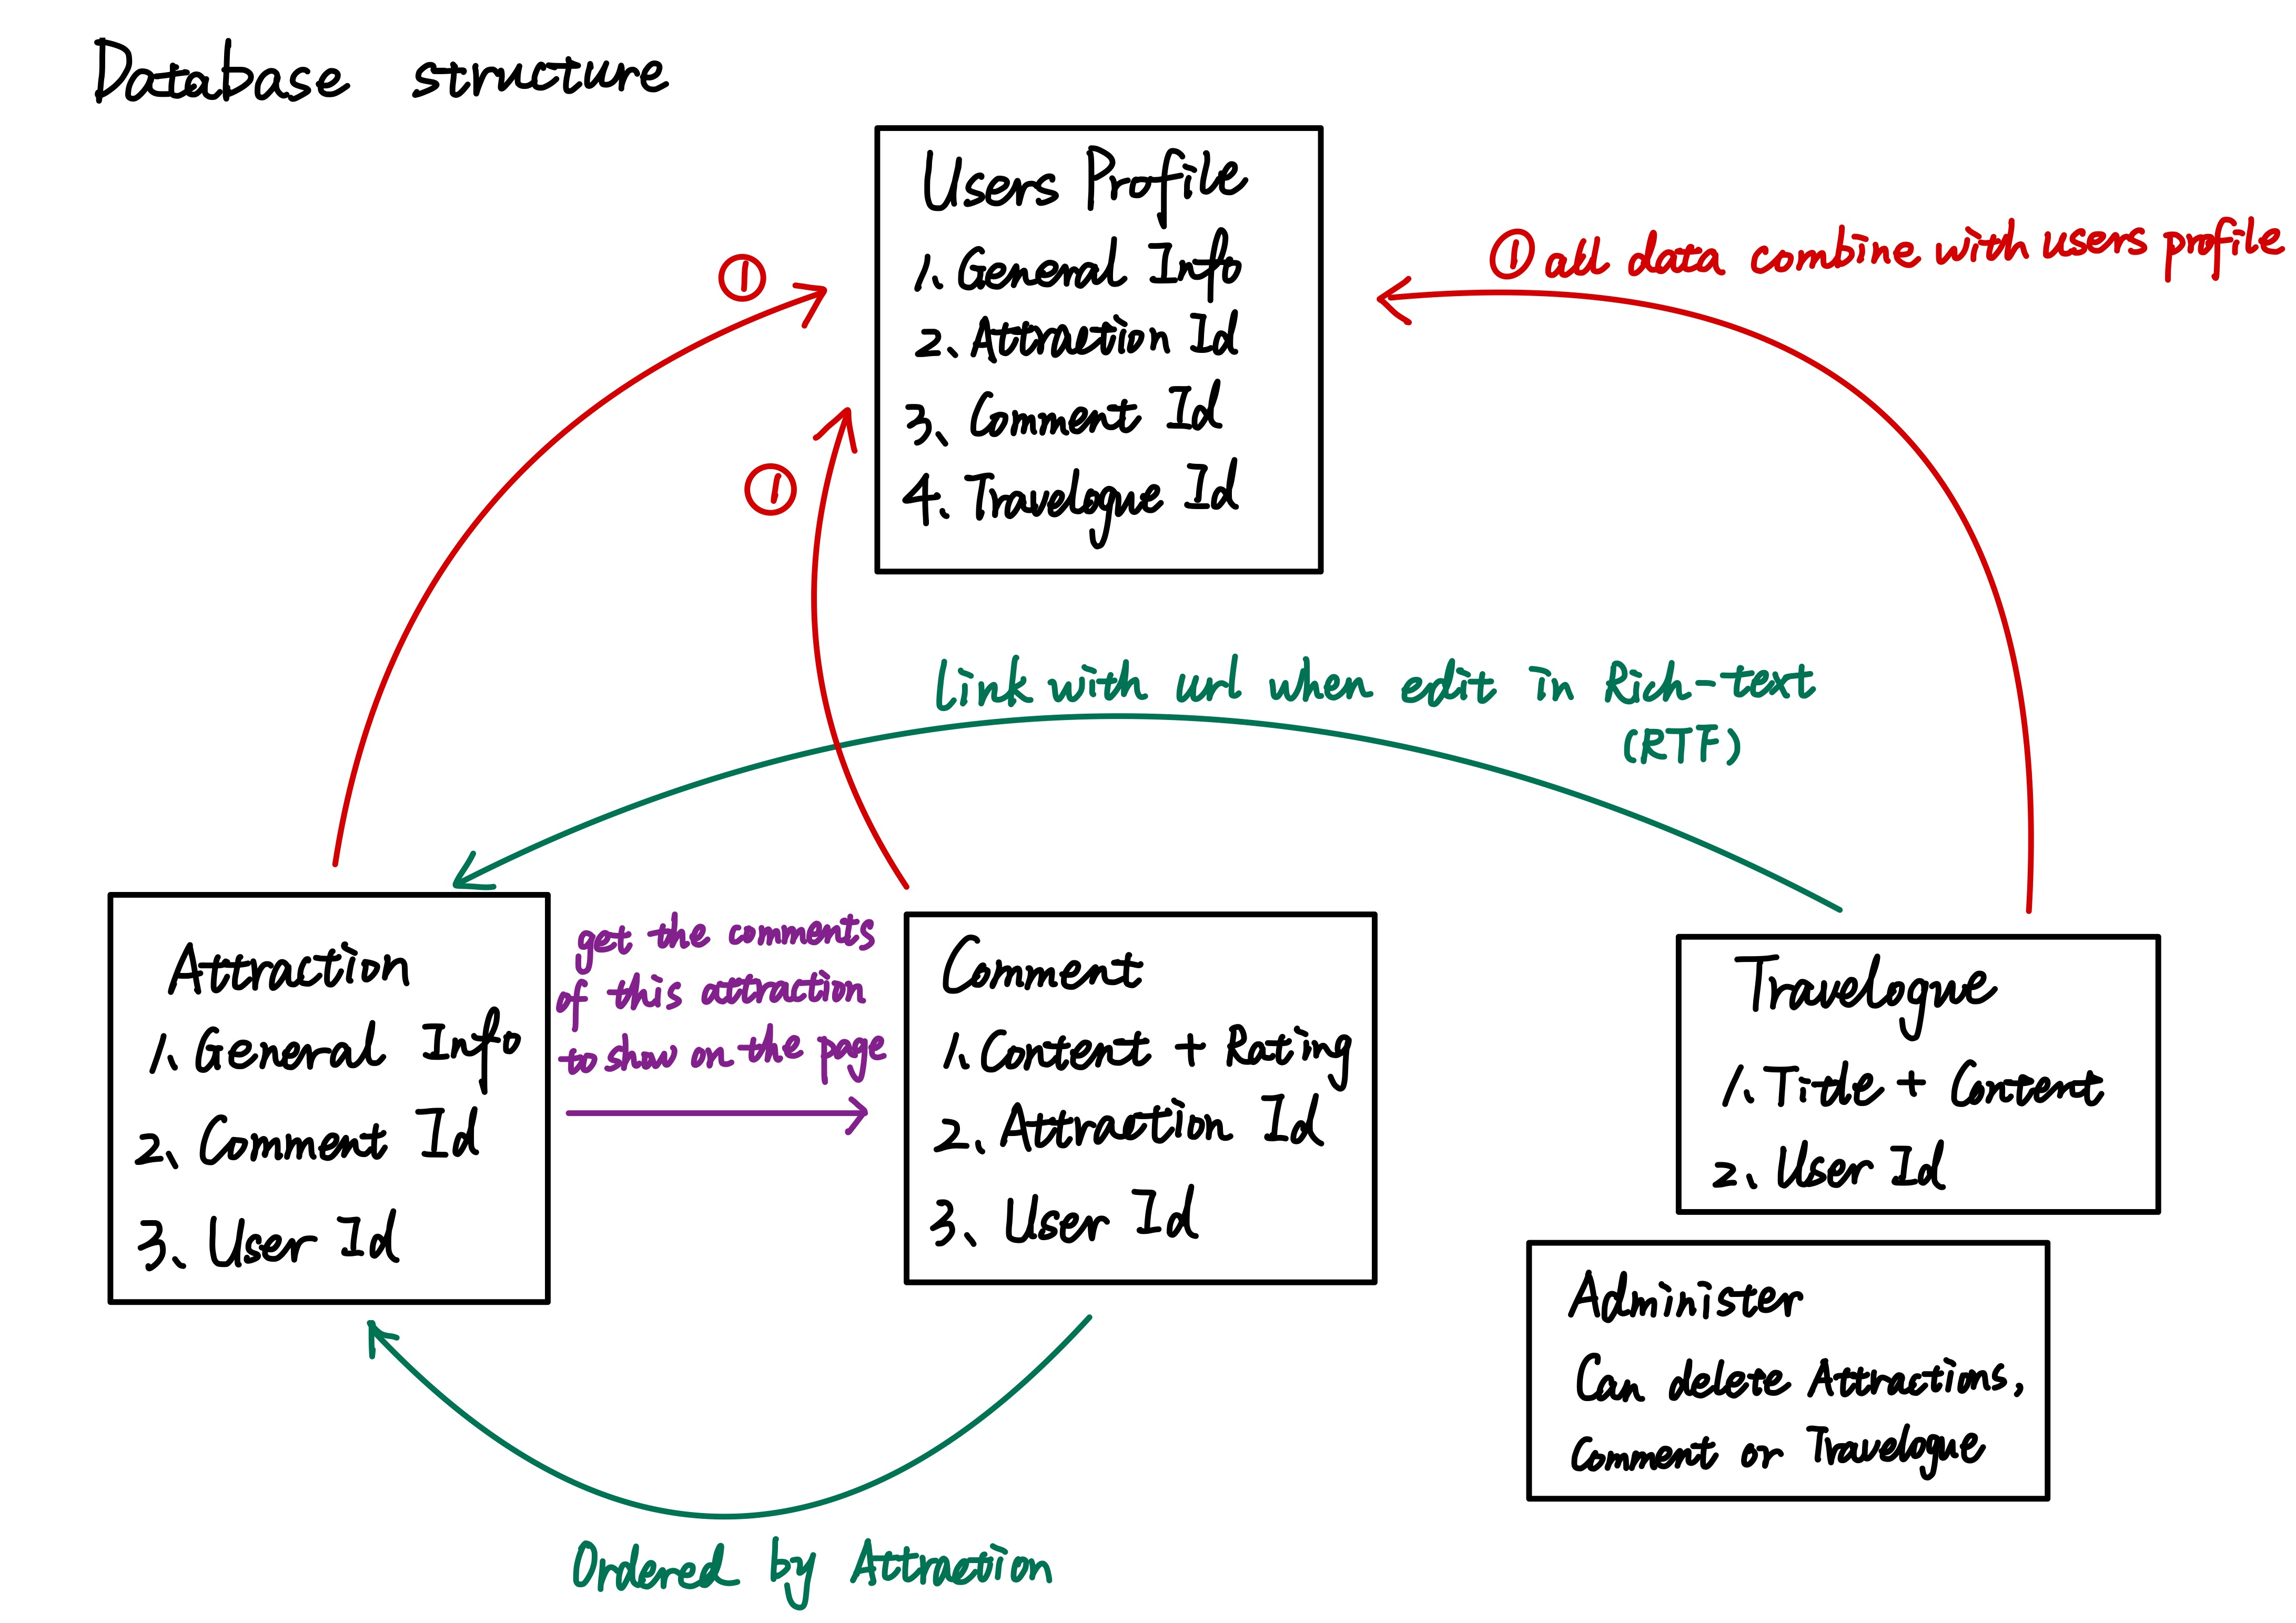 Database structure
Users Profile
1. General Info
2、Attraction Id
3、Comment Id
4. Travelogue Id
①
①
① all data combine with users profile
Link with url when edit in Rich-text
(RTF)
Attraction
1. General Info
2、Comment Id
3、User Id
get the comments
of this attraction
to show on the page
Comment
1. Content + Rating
2、Attraction Id
3、User Id
Travelogue
1. Title + Content
2、User Id
Administer
Can delete Attractions,
Comment or Travelogue
Ordered by Attraction